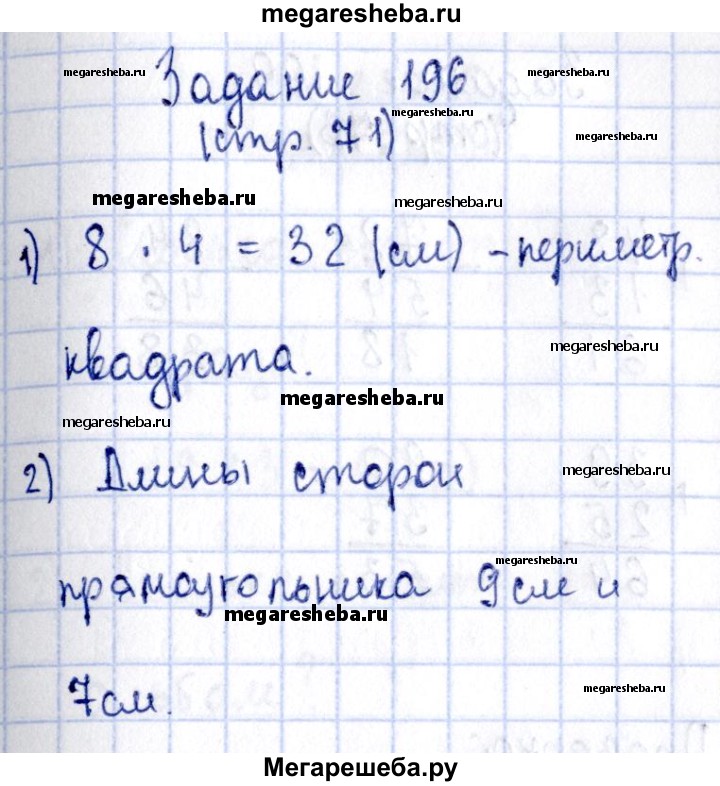 megaresheba.ru
megaresheba.ru
megaresheba.ru
Задание 196
megaresheba.ru
(стр. 71)
megaresheba.ru
megaresheba.ru
megaresheba.ru
1) 8 · 4 = 32 (см) - периметр.
megaresheba.ru
квадрата.
megaresheba.ru
megaresheba.ru
2) Длины сторон
megaresheba.ru
megaresheba.ru
прямоугольника 9 см и
megaresheba.ru
megaresheba.ru
7 см.
Мегарешеба.ру